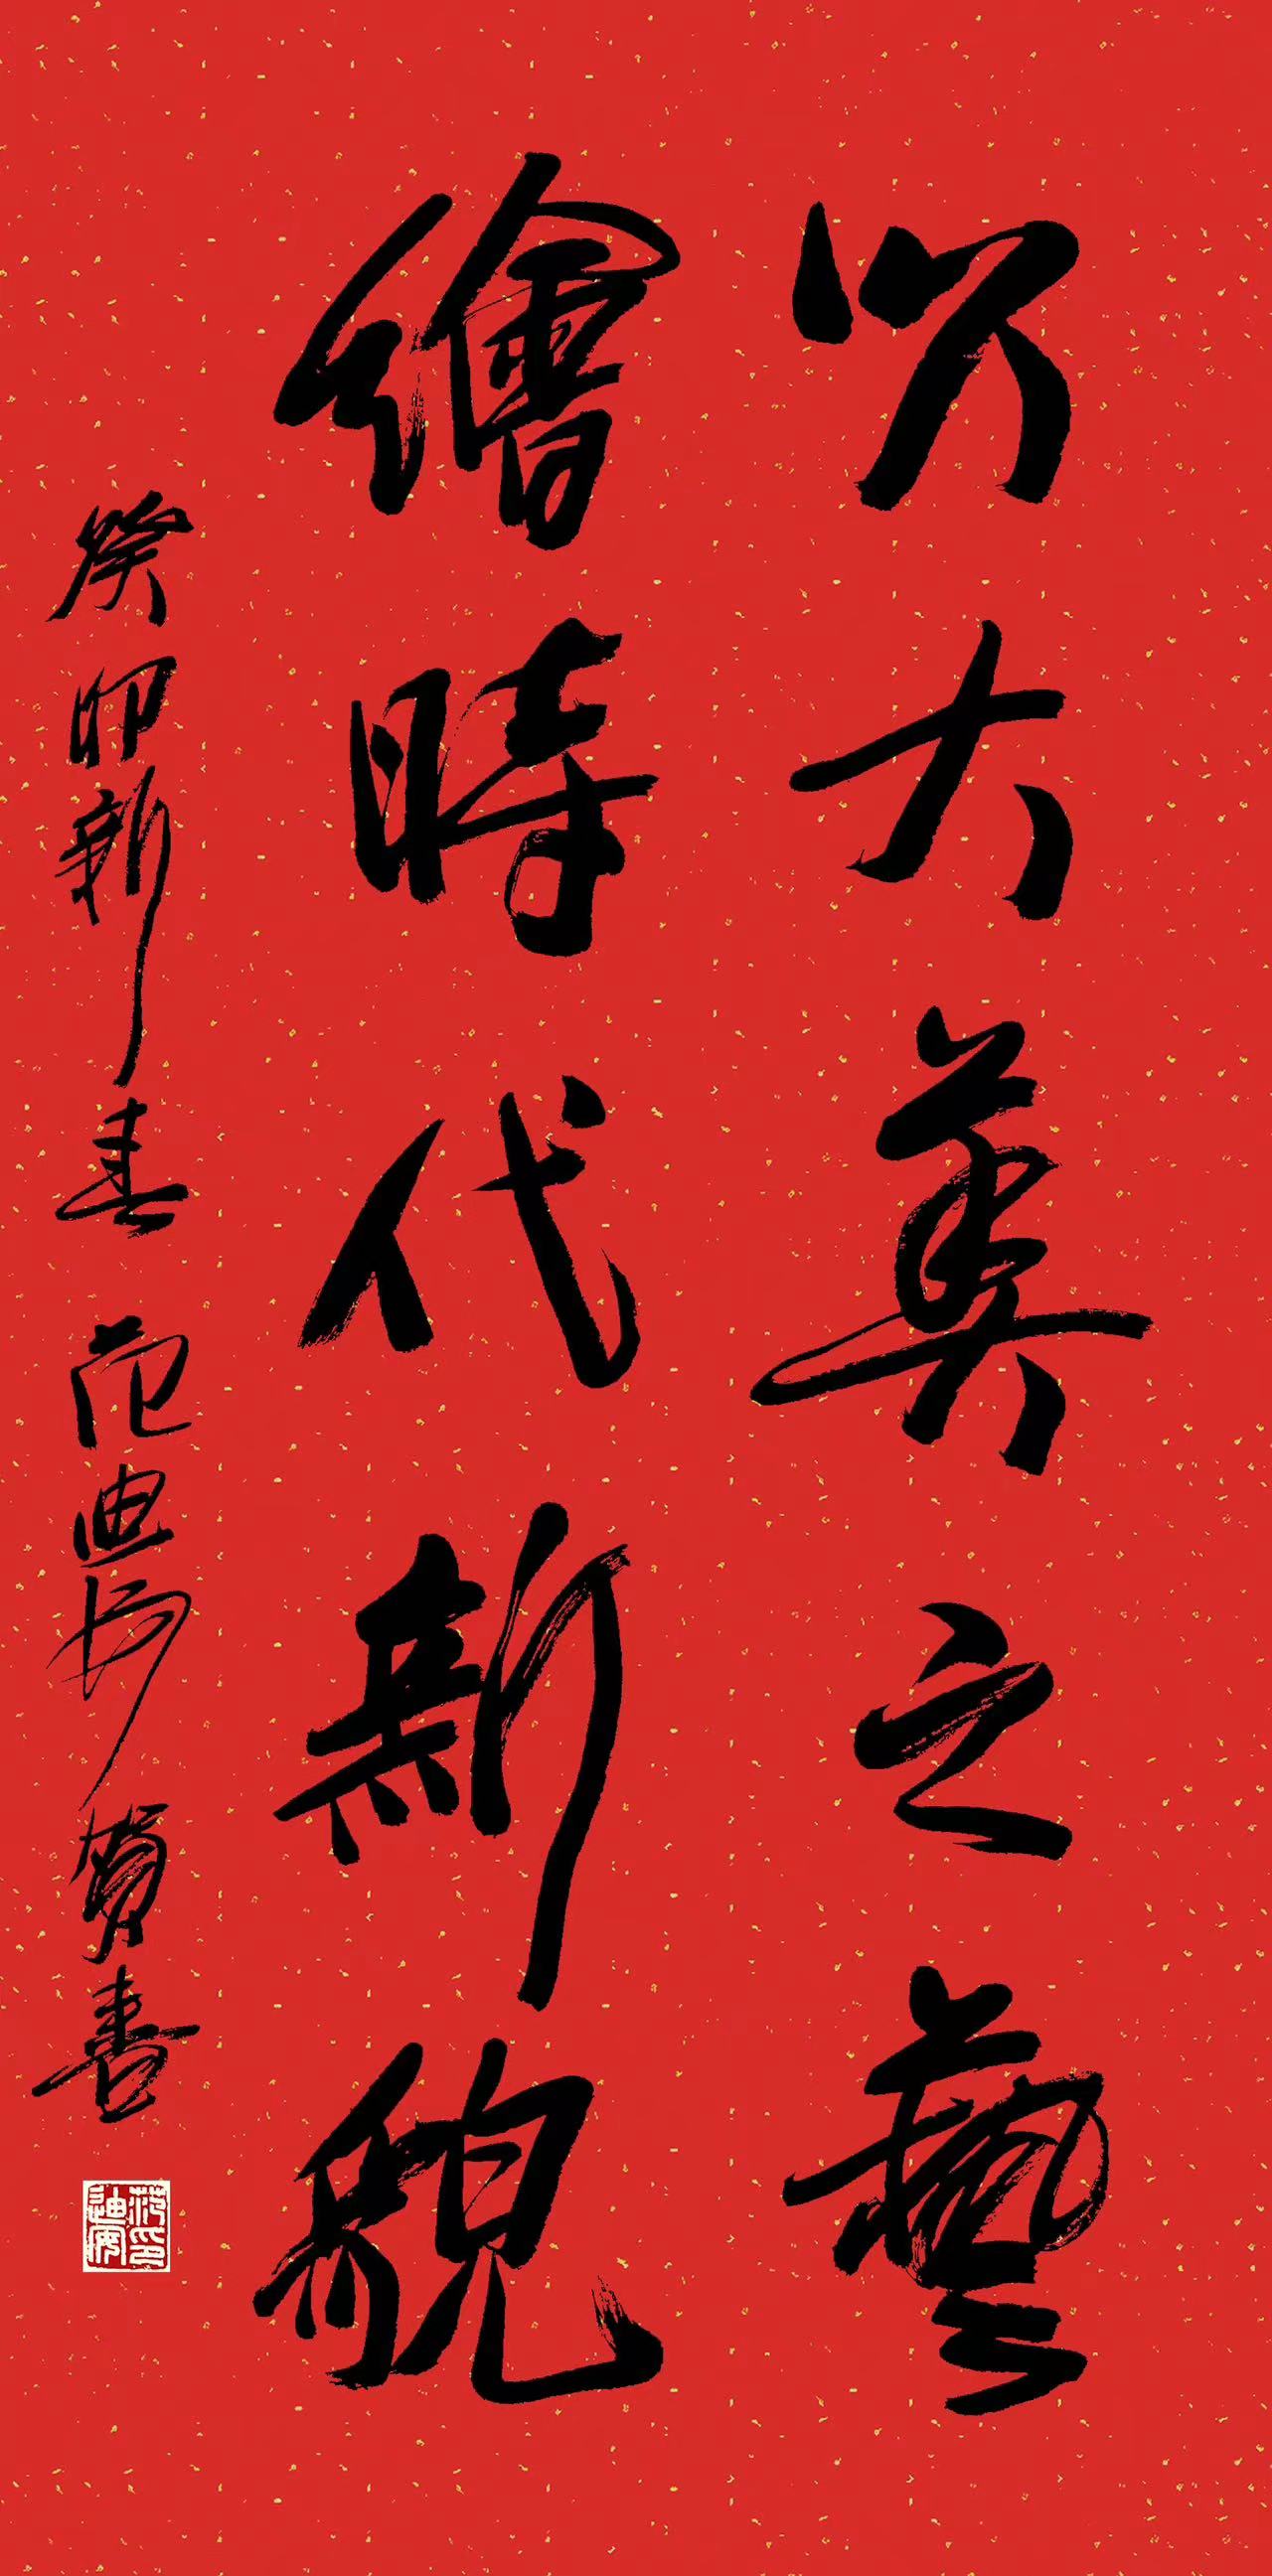 以大美之藝
繪時代新貌
癸卯新春 范迪安賀書
范迪安印